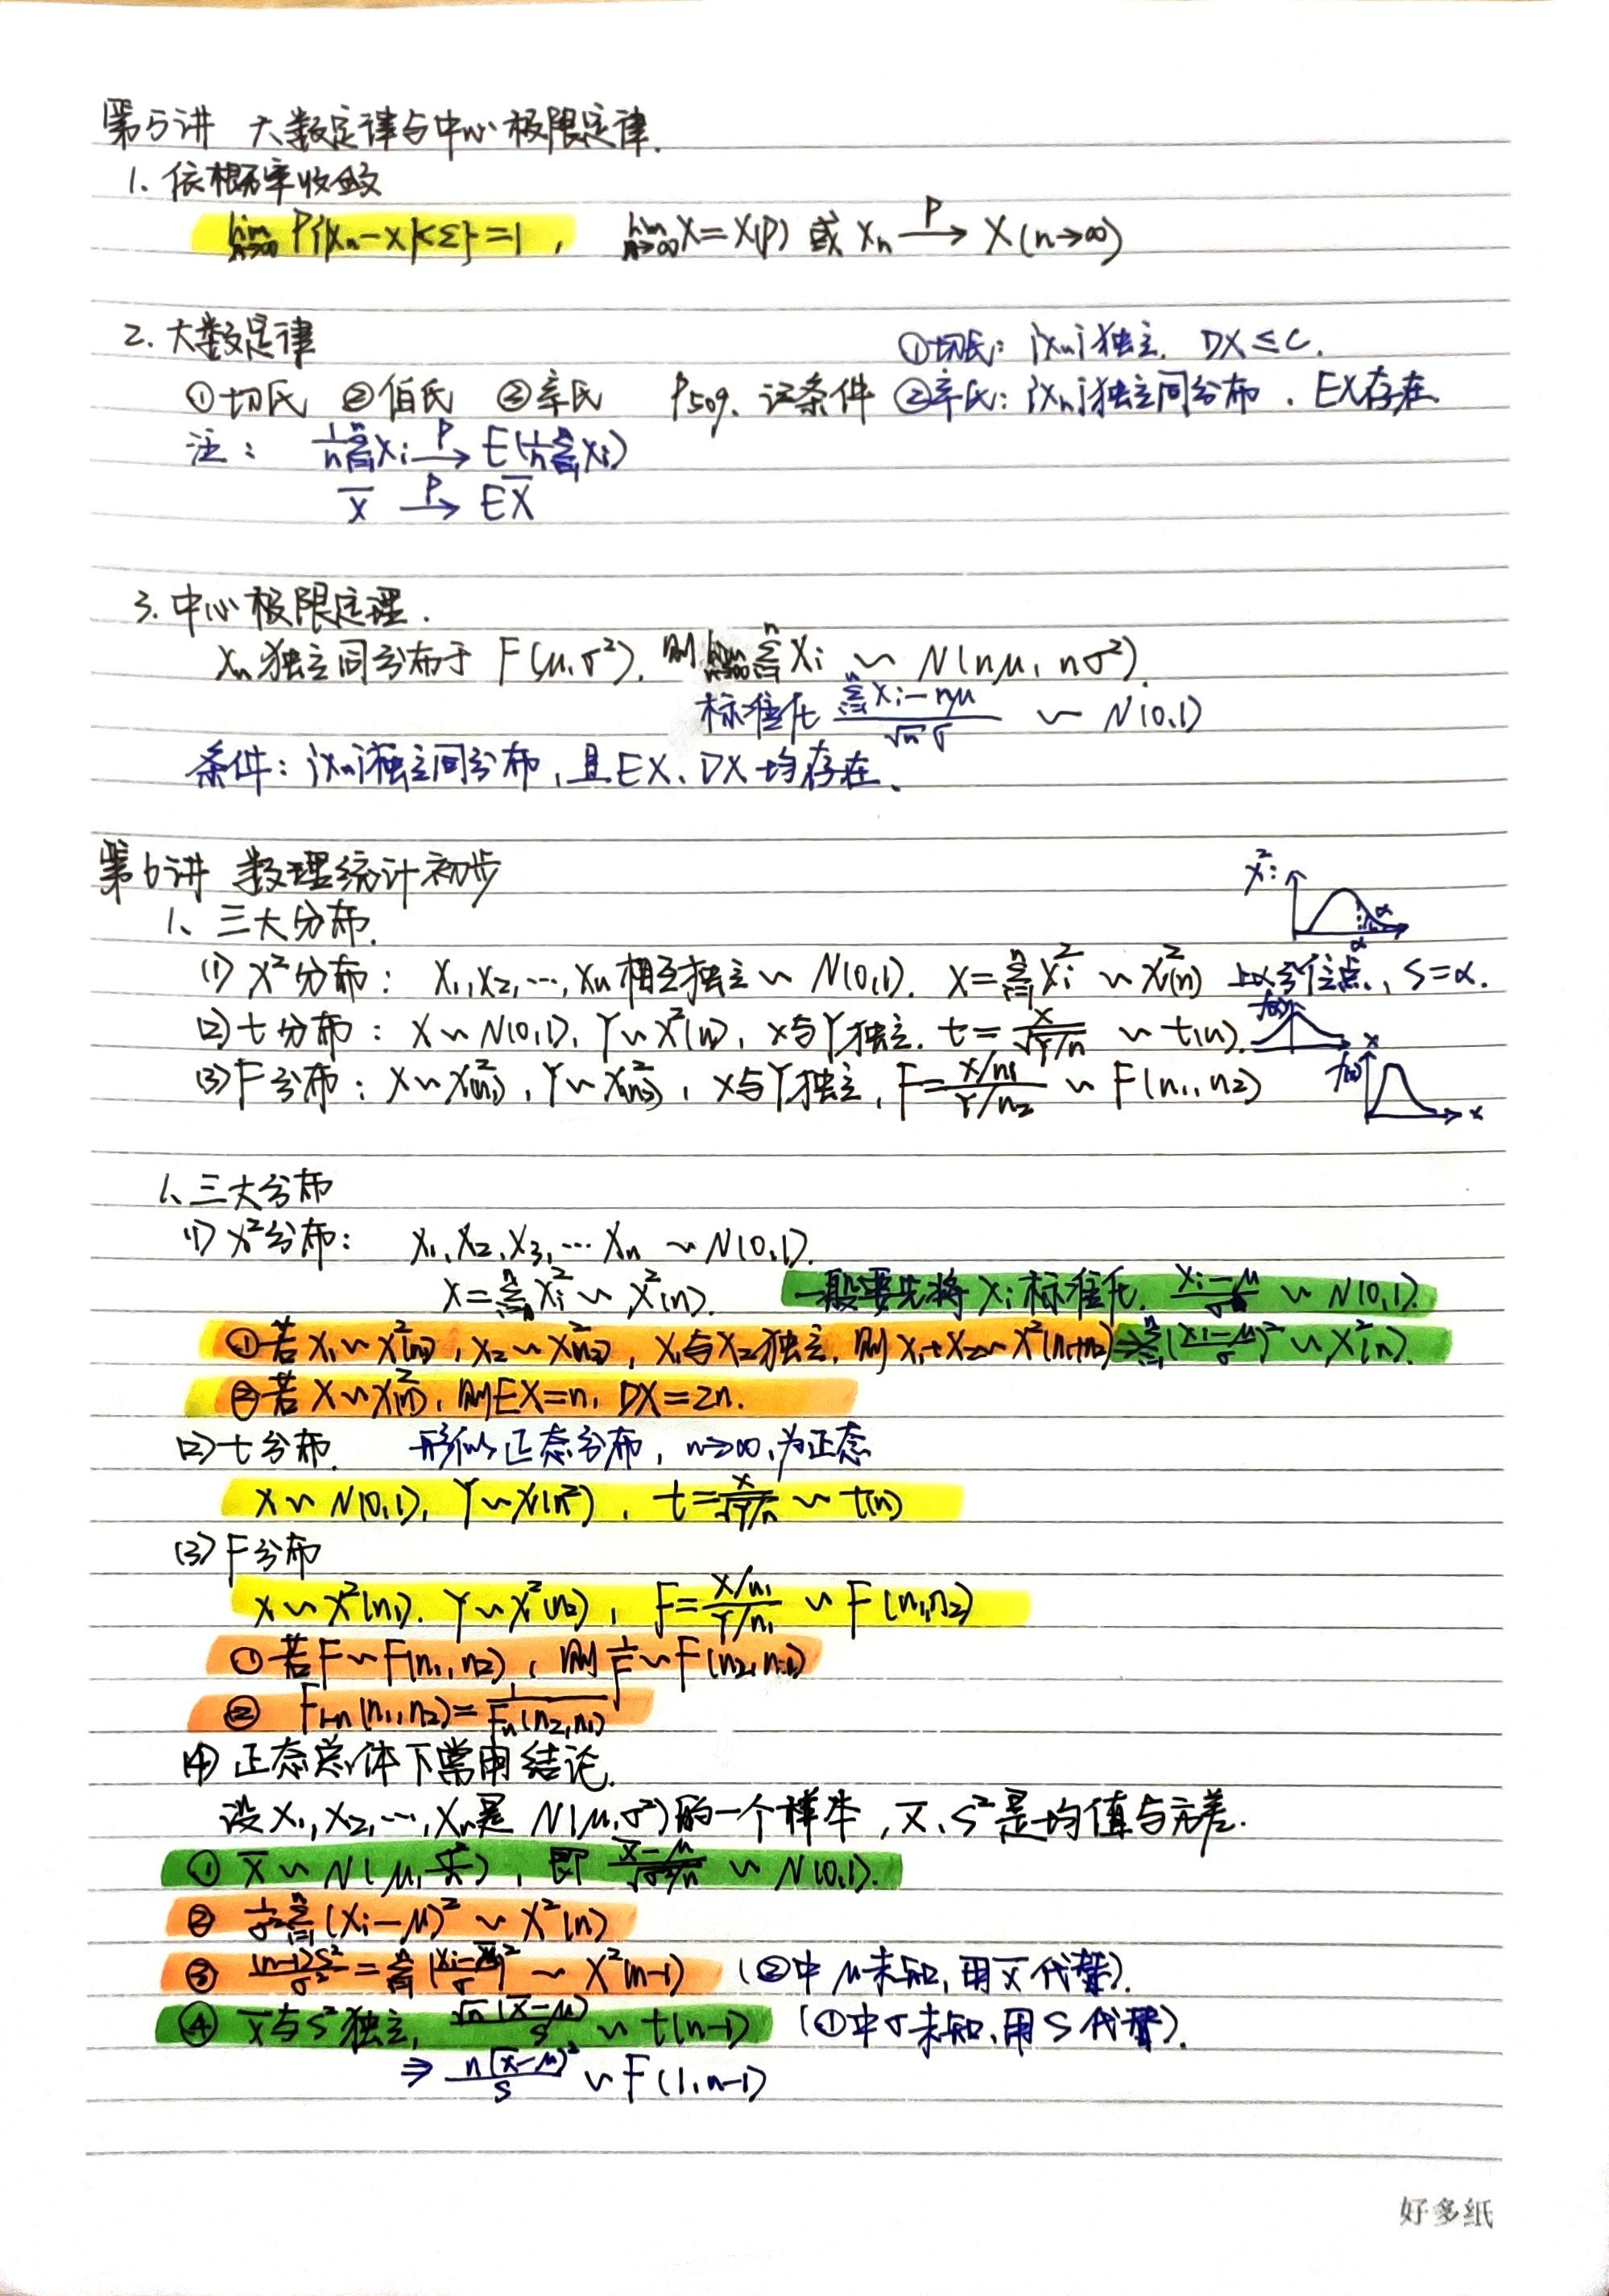 第5讲 大数定律与中心极限定律.
1. 依概率收敛
lim n→∞ P{|Xn-X|<Σ}=1, lim n→∞ X=X(P) 或 Xn —P→ X(n→∞)
2. 大数定律 ①切氏: {Xn}独立. DX≤C.
①切氏 ②伯氏 ③辛氏 P509. 记条件 ②辛氏: {Xn}独立同分布. EX存在
注: 1/n Σ(i=1,n) Xi —P→ E(1/n Σ(i=1,n) Xi)
X̄ —P→ EX̄
3. 中心极限定理.
Xn独立同分布于 F(μ,σ²). 则 lim n→∞ Σ(i=1,n) Xi ~ N(nμ, nσ²).
标准化 (Σ(i=1,n) Xi-nμ)/(√n σ) ~ N(0,1)
条件: {Xn}独立同分布, 且EX、DX均存在.
第6讲 数理统计初步
χ²: α α
1、三大分布.
(1) χ²分布: X1,X2,…,Xn相互独立~N(0,1). X=Σ(i=1,n) Xi² ~ χ²(n) 上α分位点, S=α.
(2) t分布: X~N(0,1), Y~χ²(n), X与Y独立. t=X/√(Y/n) ~ t(n). f(x) x
(3) F分布: X~χ²(n1), Y~χ²(n2), X与Y独立, F=(X/n1)/(Y/n2) ~ F(n1,n2) f(x) x
1、三大分布
(1) χ²分布: X1,X2,X3,…Xn ~N(0,1).
X=Σ(i=1,n) Xi² ~ χ²(n). 一般要先将Xi标准化. (Xi-μ)/σ ~ N(0,1).
①若X1~χ²(n1), X2~χ²(n2), X1与X2独立, 则X1+X2~χ²(n1+n2) ⇒Σ(i=1,n)((Xi-μ)/σ)² ~ χ²(n).
②若X~χ²(n), 则EX=n, DX=2n.
(2) t分布. 形似正态分布, n→∞,为正态
X~N(0,1), Y~χ(n²), t=X/√(Y/n) ~ t(n)
(3) F分布
X~χ²(n1). Y~χ²(n2), F=(X/n1)/(Y/n1) ~ F(n1,n2)
①若F~F(n1,n2), 则1/F~F(n2,n1)
② F1-α(n1,n2)=1/Fα(n2,n1)
(4) 正态总体下常用结论.
设X1,X2,…,Xn是N(μ,σ²)的一个样本, X̄、S²是均值与方差.
① X̄~N(μ,σ²/n), 即 (X̄-μ)/√(σ²/n) ~ N(0,1).
② 1/σ² Σ(i=1,n)(Xi-μ)² ~ χ²(n)
③ (n-1)S²/σ² = Σ(i=1,n)((Xi-X̄)/σ)² ~ χ²(n-1) (②中μ未知, 用X̄代替).
④ X̄与S²独立, √n(X̄-μ)/S ~ t(n-1) (①中σ未知, 用S代替).
⇒ n(X̄-μ)²/S ~ F(1,n-1)
好多纸